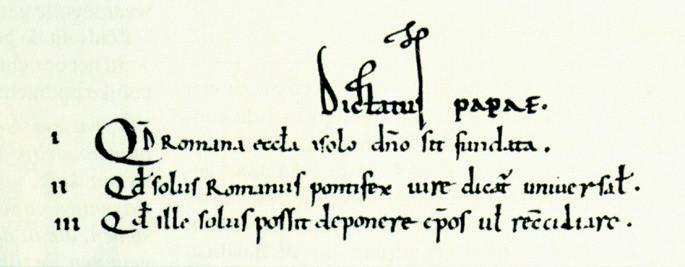 Dictatus papae.
I Qd Romana eccla a solo dno sit fundata.
II Qd solus Romanus pontifex iure dicat universal.
III Qd ille solus possit deponere epos ul reconciliare.